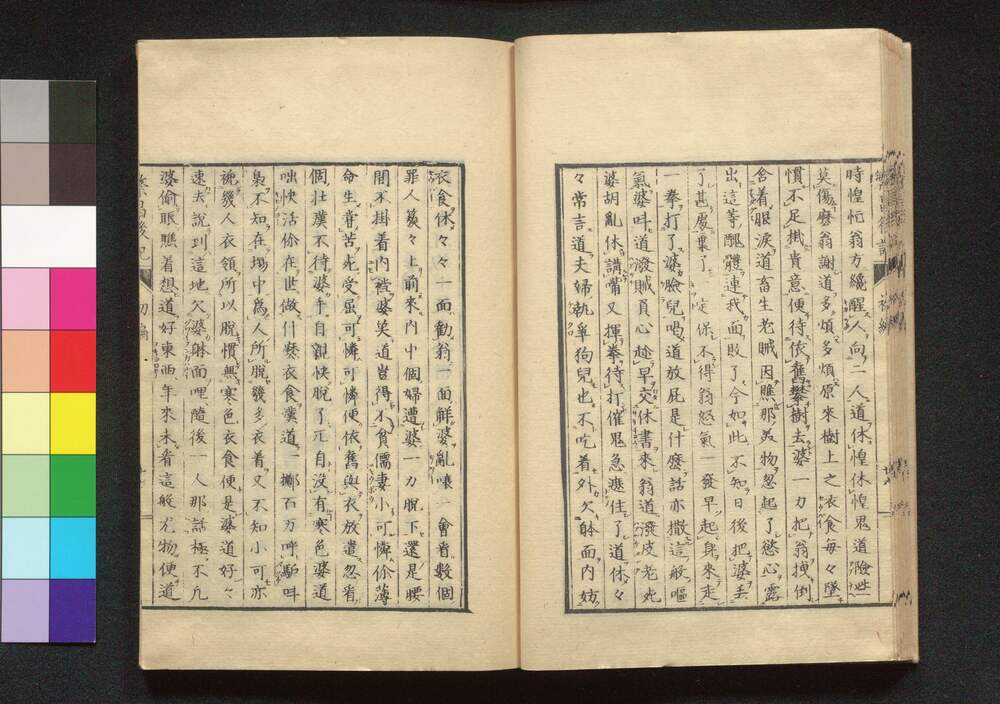 時惶忙翁方纔醒人向二人道休惶休惶鬼道險些
莫傷麼翁謝道多煩多煩原來樹上之衣食每々墜
慣不足掛貴意便待依舊攀樹去婆一力把翁拽倒
含着眼淚道畜生老賊因瞧那美物忽起了慾心露
出這等醜體連我面敗了今如此不知日後把婆丢
了甚處裏了一定保不得翁怒氣一發早起身來走
一拳打了婆臉兒喝道放屁是什麼話亦撒這般嘔
氣婆叫道潑賊負心尬早交休書來翁道潑皮老死
婆胡亂休講嘴又揮拳待打催鬼急遮住了道休々
々常言道夫婦執拿狗兒也不吃着外欠躰面内妨
衣食休々々一面勸翁一面解婆亂嚷一會看數個
罪人笈々上前來内中個婦遭婆一力脫下還是腰
間不掛着内裩婆笑道豈得不貧儒妻小可憐你薄
命生嘗苦死受虽可憐可憐便依舊與衣放遣忽看
個壯漢不待婆手自親快脫了兀自沒有寒色婆道
咄快活你在世做什麼衣食漢道一擲百万呼駈叫
梟不知在場中為人所脫發多衣着又不知小可亦
裞幾人衣領所以脫慣無寒色衣食便是婆道好々
速去說到這地欠婆躰面哩隨後一人那話極不凡
婆偷眼瞧着想道好東西年來未看這般尤物便道
繁昌後記　初編